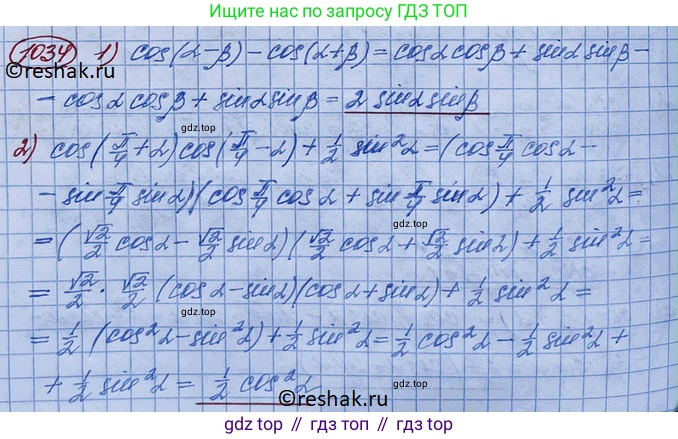 Ищите по запросу ГДЗ ТОП
1034 1) cos(α-β) - cos(α+β) = cosα cosβ + sinα sinβ -
©reshak.ru
- cosα cosβ + sinα sinβ = 2 sinα sinβ
gdz.top
2) cos(π/4 + α) cos(π/4 - α) + 1/2 sin²α = (cos π/4 cosα -
- sin π/4 sinα)(cos π/4 cosα + sin π/4 sinα) + 1/2 sin²α =
gdz.top
= (√2/2 cosα - √2/2 sinα)(√2/2 cosα + √2/2 sinα) + 1/2 sin²α =
= √2/2 · √2/2 (cosα - sinα)(cosα + sinα) + 1/2 sin²α =
gdz.top
= 1/2 (cos²α - sin²α) + 1/2 sin²α = 1/2 cos²α - 1/2 sin²α +
+ 1/2 sin²α = 1/2 cos²α
©reshak.ru
gdz top // gdz top // gdz top